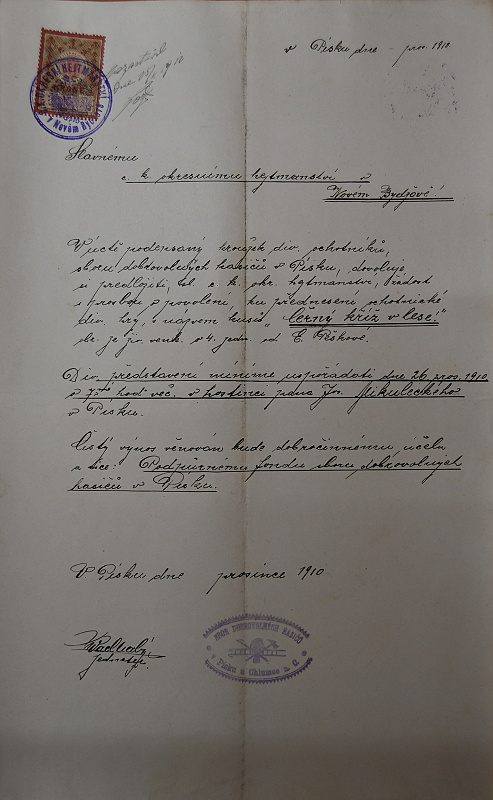 v Písku dne - pros. 1910.
Slavnému
c. k. okresnímu hejtmanství v
Novém Bydžově!
V úctě podepsaný kroužek div. ochotníků,
sboru dobrovolných hasičů v Písku, dovoluje
si předložiti, sl. c. k. okr. hejtmanství, žádost
s prosbou o povolení, ku přednesení ochotnické
div. hry, s názvem kusu „černý kříž v lese!"
obr. ze živ. venk. o 4. jedn. od E. Peškové.
Div. představení míníme uspořádati dne 26. pros. 1910.
o 7 hod več. v hostinci pana Jos. Mikuleckého
v Písku.
Čistý výnos věnován bude dobročinnému účelu
a sice: Podpůrnému fondu sboru dobrovolných
hasičů v Písku.
V Písku dne prosince 1910
jednatel.
SBOR DOBROVOLNÝCH HASIČŮ
v Písku u Chlumce n. C.